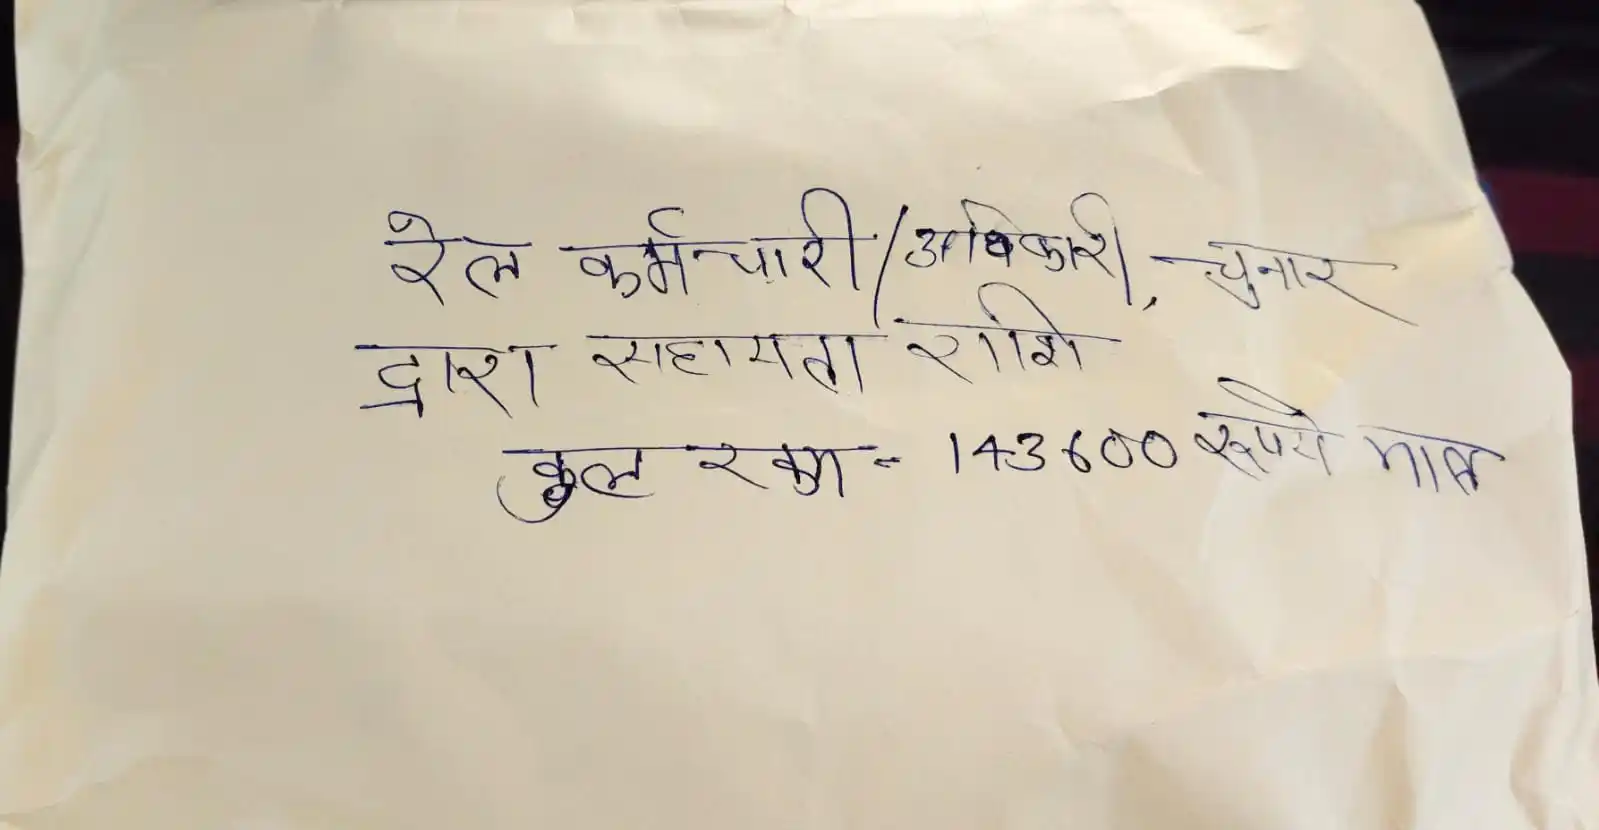 रेल कर्मचारी/अधिकारी, चुनार
द्वारा सहायता राशि
कुल रकम = 143600 रूपये मात्र